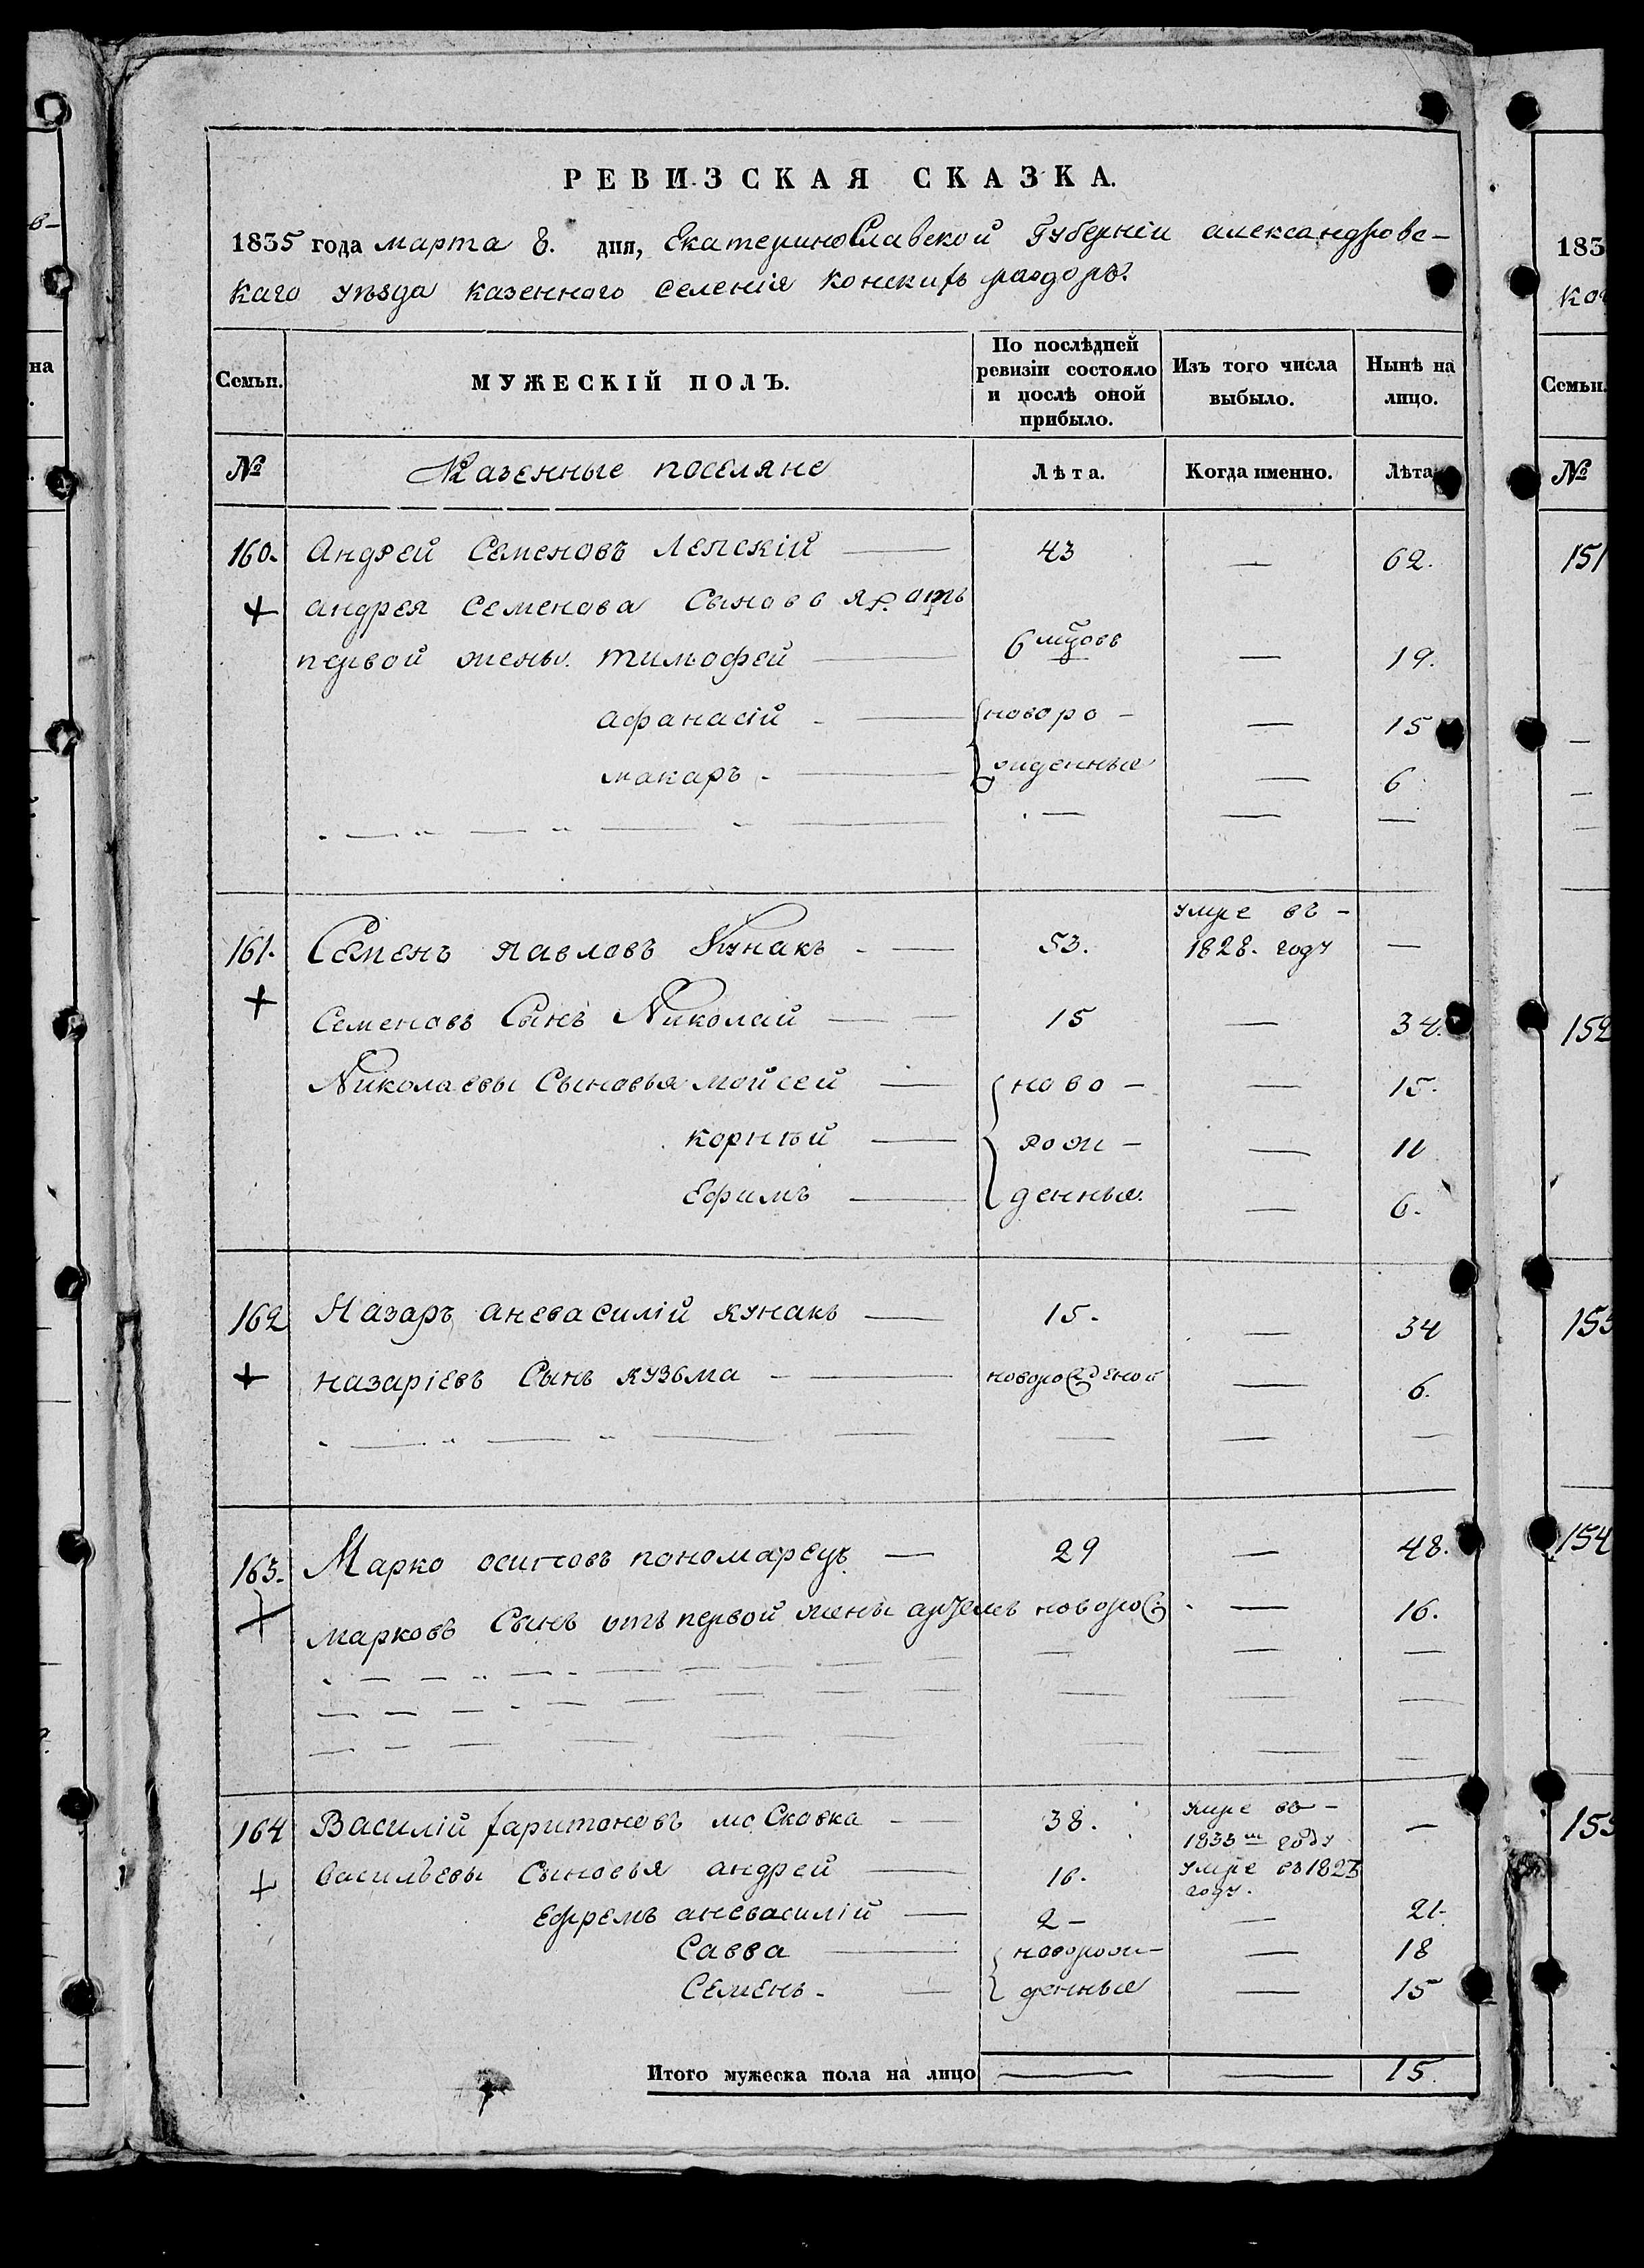 РЕВИЗСКАЯ СКАЗКА.
1835 года марта 8. дня, Екатеринославской Губерніи александровс-
каго уѣзда казенного селенія конскихъ раздоръ.
Семьи.
МУЖЕСКІЙ ПОЛЪ.
По послѣдней ревизіи состояло и послѣ оной прибыло.
Изъ того числа выбыло.
Нынѣ на лицо.
№ Казенные поселяне Лѣта. Когда именно. Лѣта
160. Андрей Семеновъ Лепскій — 43 — 62.
андрея семенова сыновя отъ
первой жены. тимофей — 6 мцовъ — 19.
афанасій — новоро- — 15
макаръ — жденные — 6
161. Семенъ павловъ Кунакъ — 53. умре въ - 1828. году —
Семеновъ Сынъ Николай — 15 — 34.
Николаевы Сыновья мойсей — ново - — 15.
корнѣй — рож - — 11
Ефимъ — денные. — 6.
162 Назаръ аневасилій кунакъ — 15. — 34
назаріевъ Сынъ кузьма — — 6.
163. Марко осиповъ пономарецъ — 29 — 48.
марковъ Сынъ отъ первой жены артемъ — 16.
164 Василій харитоновъ московка — 38. умре въ - 1833 году —
васильевы Сыновья андрей — 16. умре въ 1823 году.
Ефремъ аневасилій — 2 - — 21.
Савва — новорож- — 18
Семенъ. — денные — 15
Итого мужеска пола на лицо — — 15.
на
№
183
Семьи.
№
151
152
154